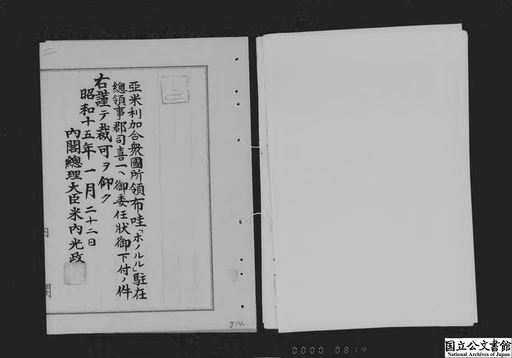 亞米利加合衆國所領布哇「ホノルル」駐在
總領事郡司喜一ヘ御委任狀御下付ノ件
右謹テ裁可ヲ仰ク
昭和十五年一月二十二日
內閣總理大臣米內光政
814
0000 0814
国立公文書館
National Archives of Japan